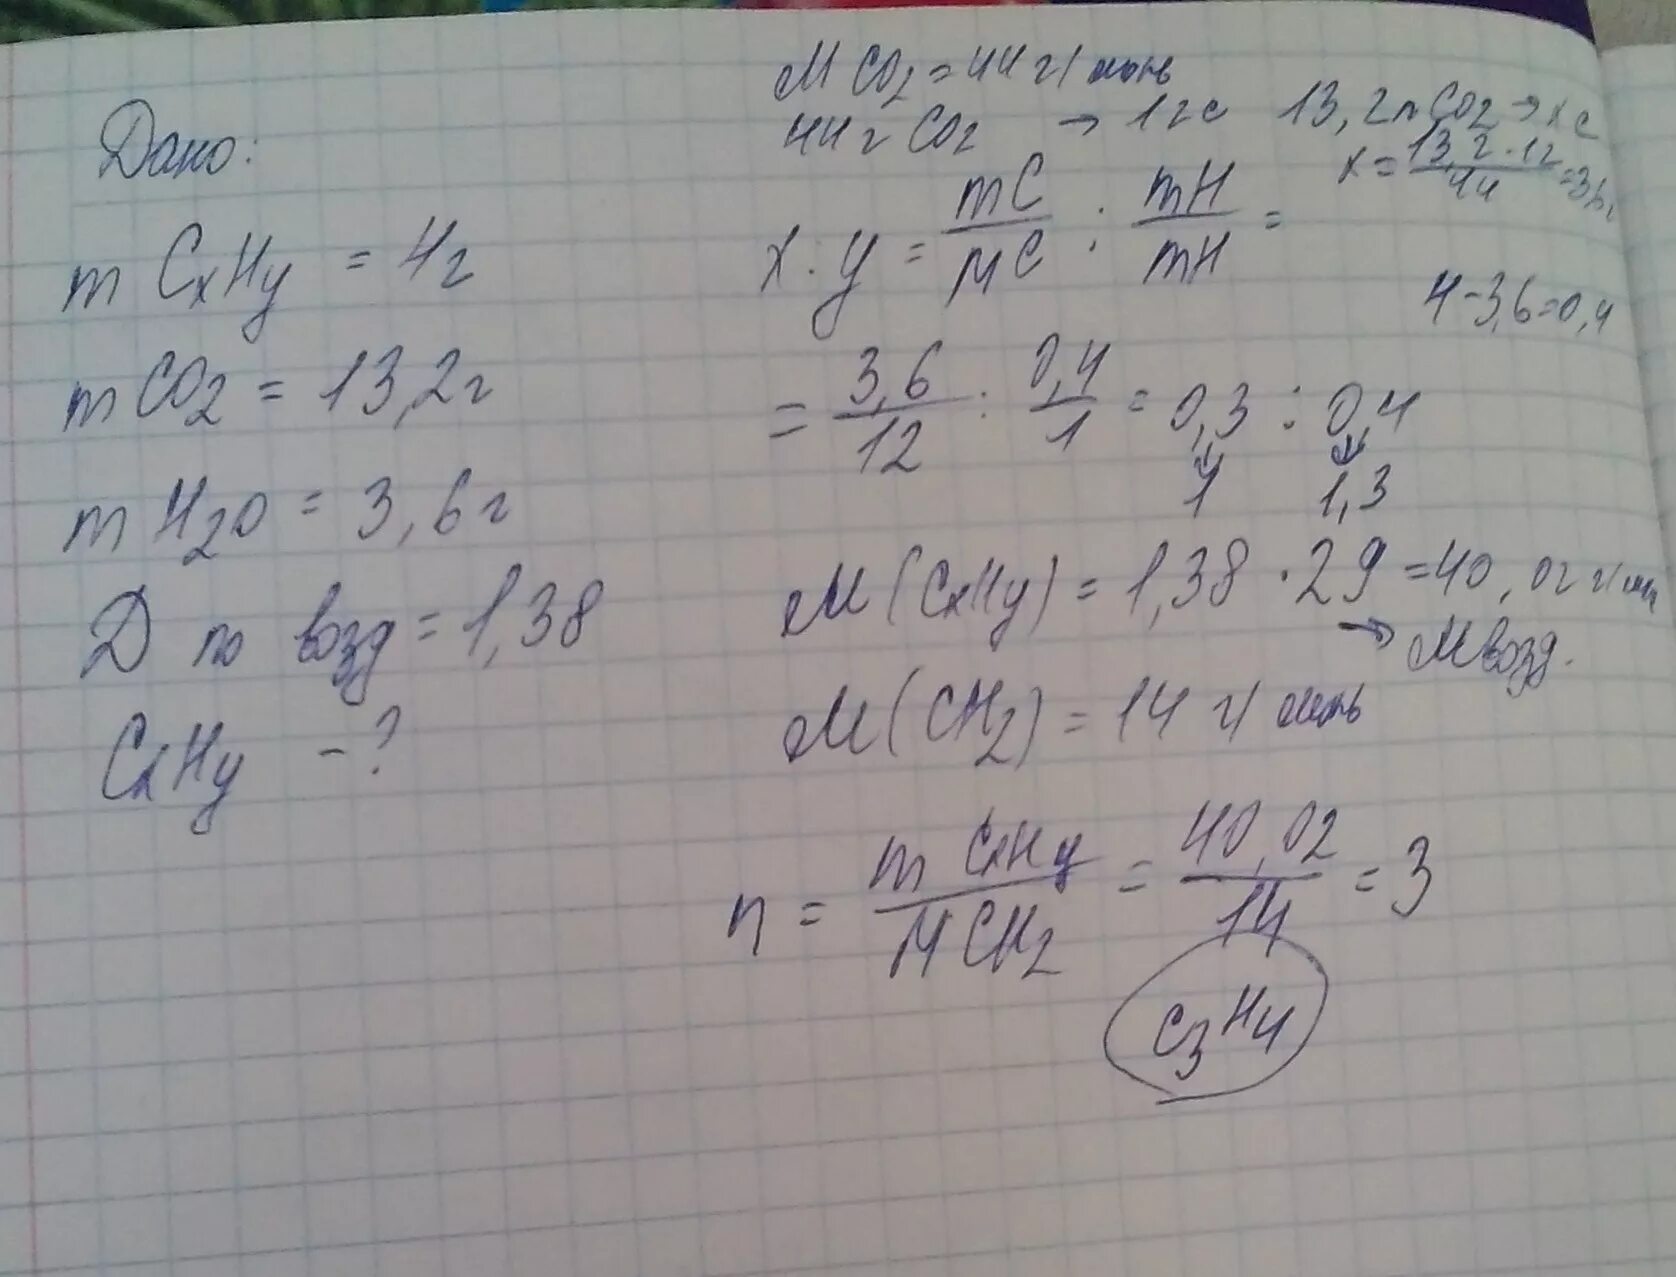 Дано:
m CxHy = 4г
m CO2 = 13,2г
m H2O = 3,6г
Д по возд = 1,38
CxHy - ?
M CO2 = 44 г/моль
44г CO2 → 12г C 13,2г CO2 → x C
x = 13,2 · 12 / 44 = 3,6
x : y = mC / MC : mH / mH =
4-3,6=0,4
= 3,6 / 12 : 0,4 / 1 = 0,3 : 0,4
1 1,3
M (CxHy) = 1,38 · 29 = 40,02 г/моль
→ M возд.
M (CH2) = 14 г/моль
n = m CxHy / M CH2 = 40,02 / 14 = 3
C3H4